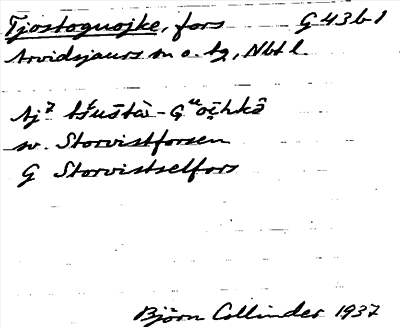 Tjostoguojke, fors G 43b1
Arvidsjaurs sn o. tg, Nbtl.
Aj7
sv. Storvistforsen
G Storvistselfors
Björn Collinder 1937